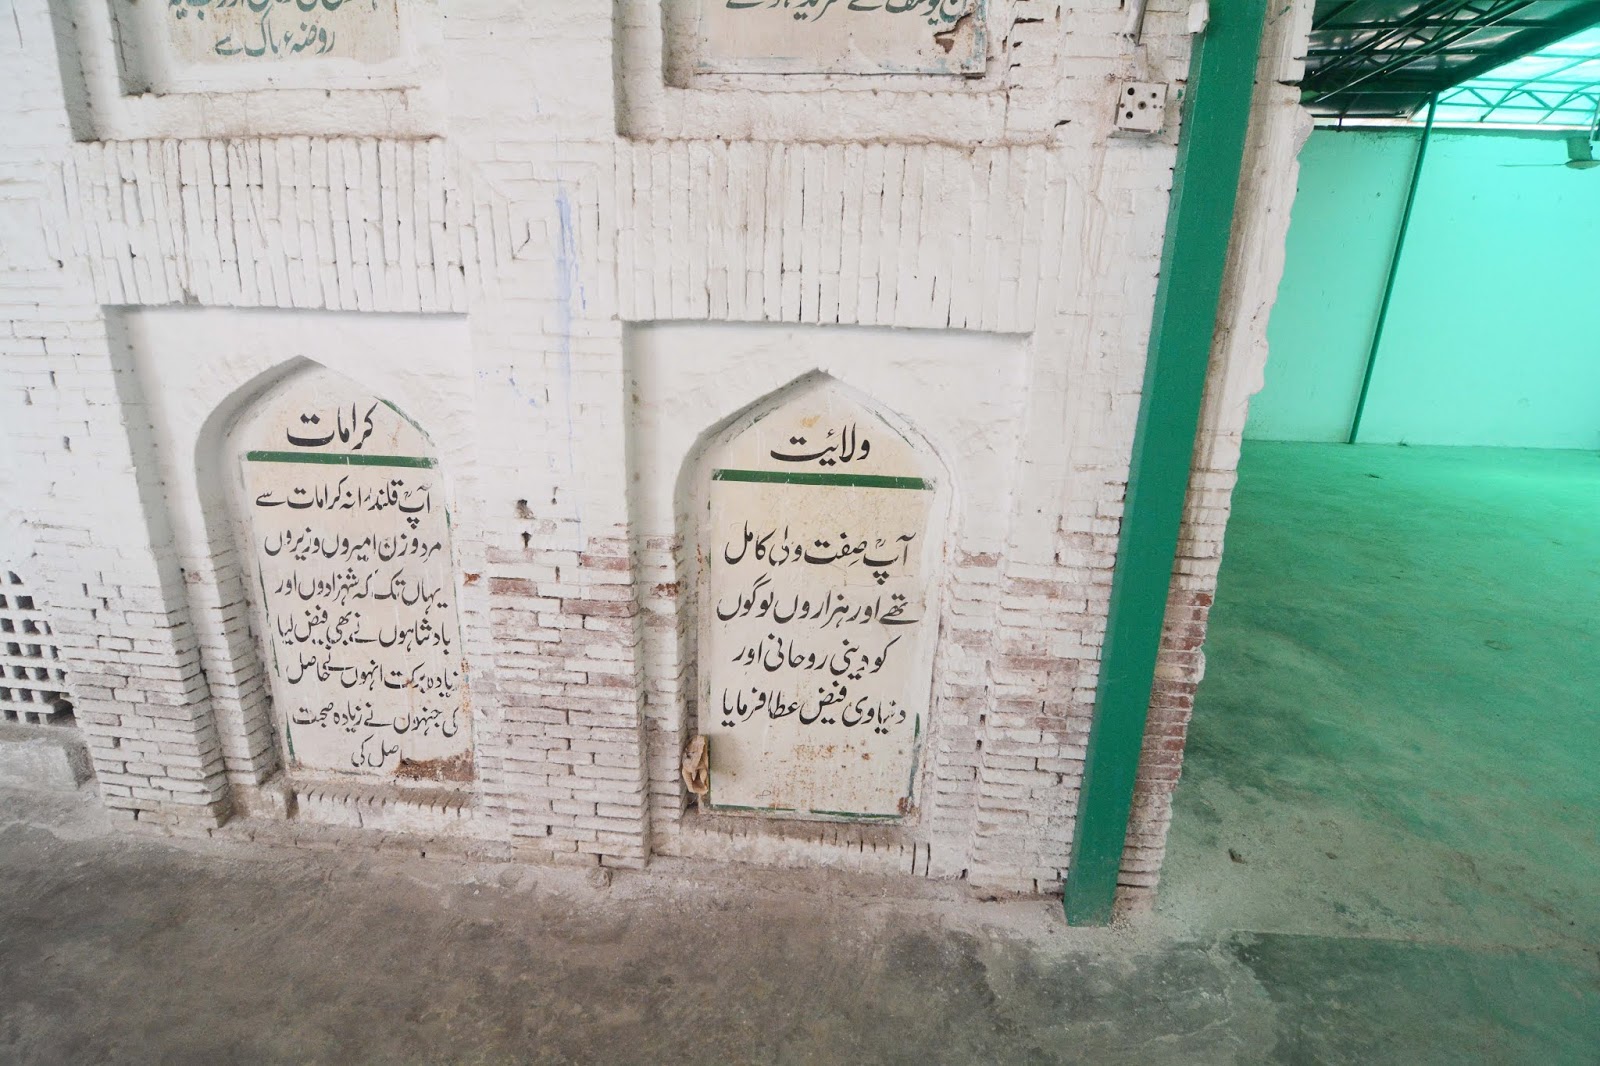 روضہء پاک سے
ولائیت
آپؒ صِفت ولی کامل
تھے اور ہزاروں لوگوں
کو دینی روحانی اور
دنیاوی فیض عطا فرمایا
کرامات
آپؒ قلندرانہ کرامات سے
مرد و زن امیروں وزیروں
یہاں تک کہ شہزادوں اور
بادشاہوں نے بھی فیض لیا
زیادہ برکت انہوں نے حاصل
کی جنہوں نے زیادہ صحبت
حاصل کی